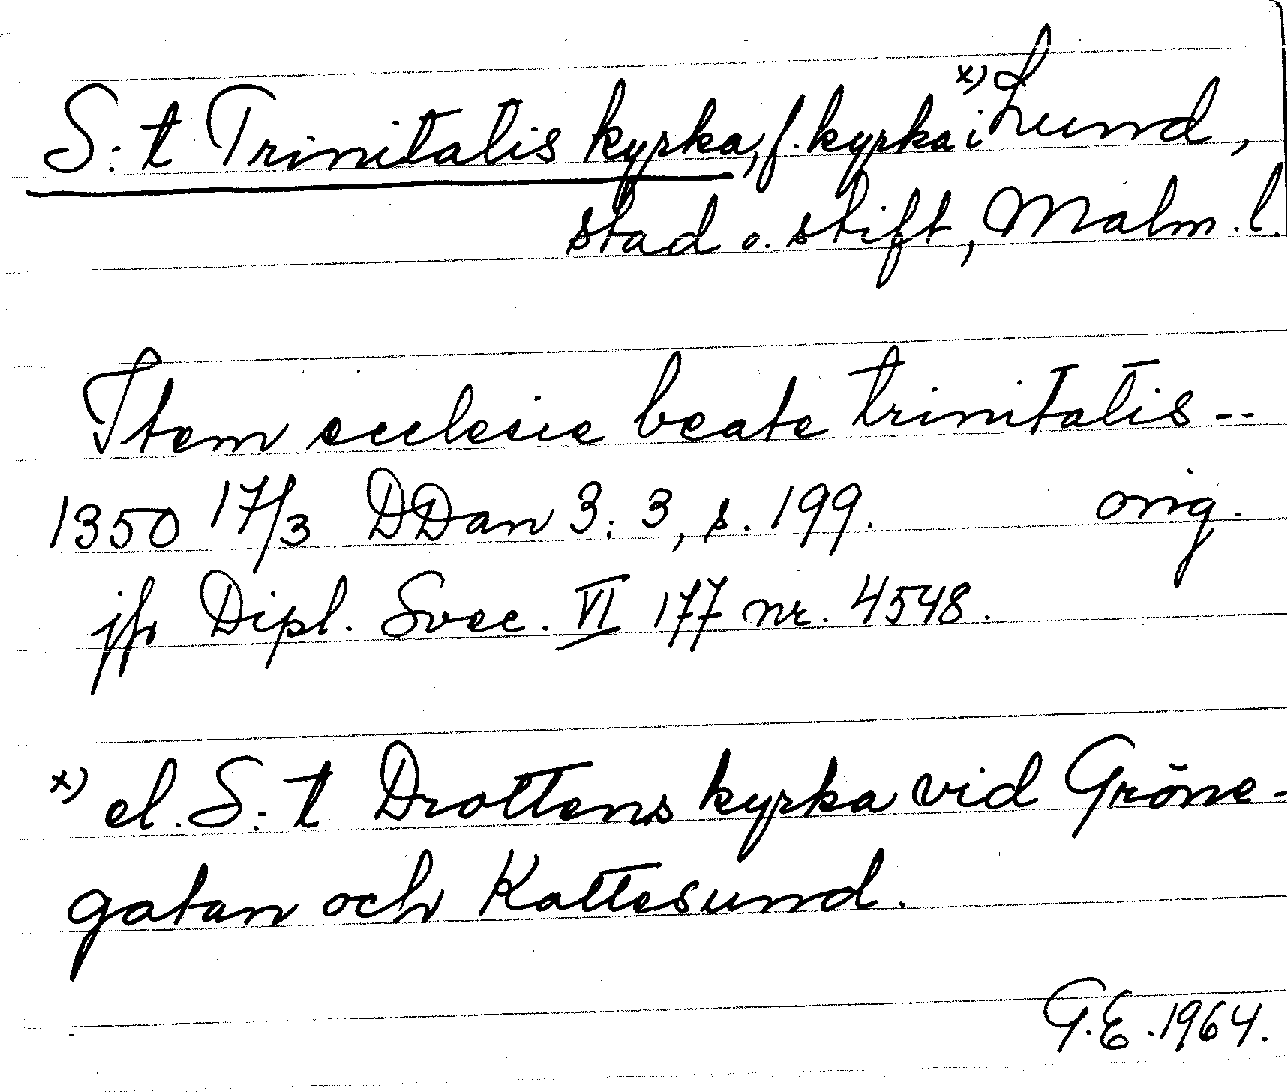 S:t Trinitatis kyrka, f. kyrka i x) Lund,
stad o. stift, Malm. l.
Item ecclesie beate trinitatis --
1350 17/3 DDan 3:3, s. 199. orig.
jfr Dipl. Svec. VI 177 nr. 4548.
x) el. S:t Drottens kyrka vid Gröne-
gatan och Kattesund.
G.E. 1964.